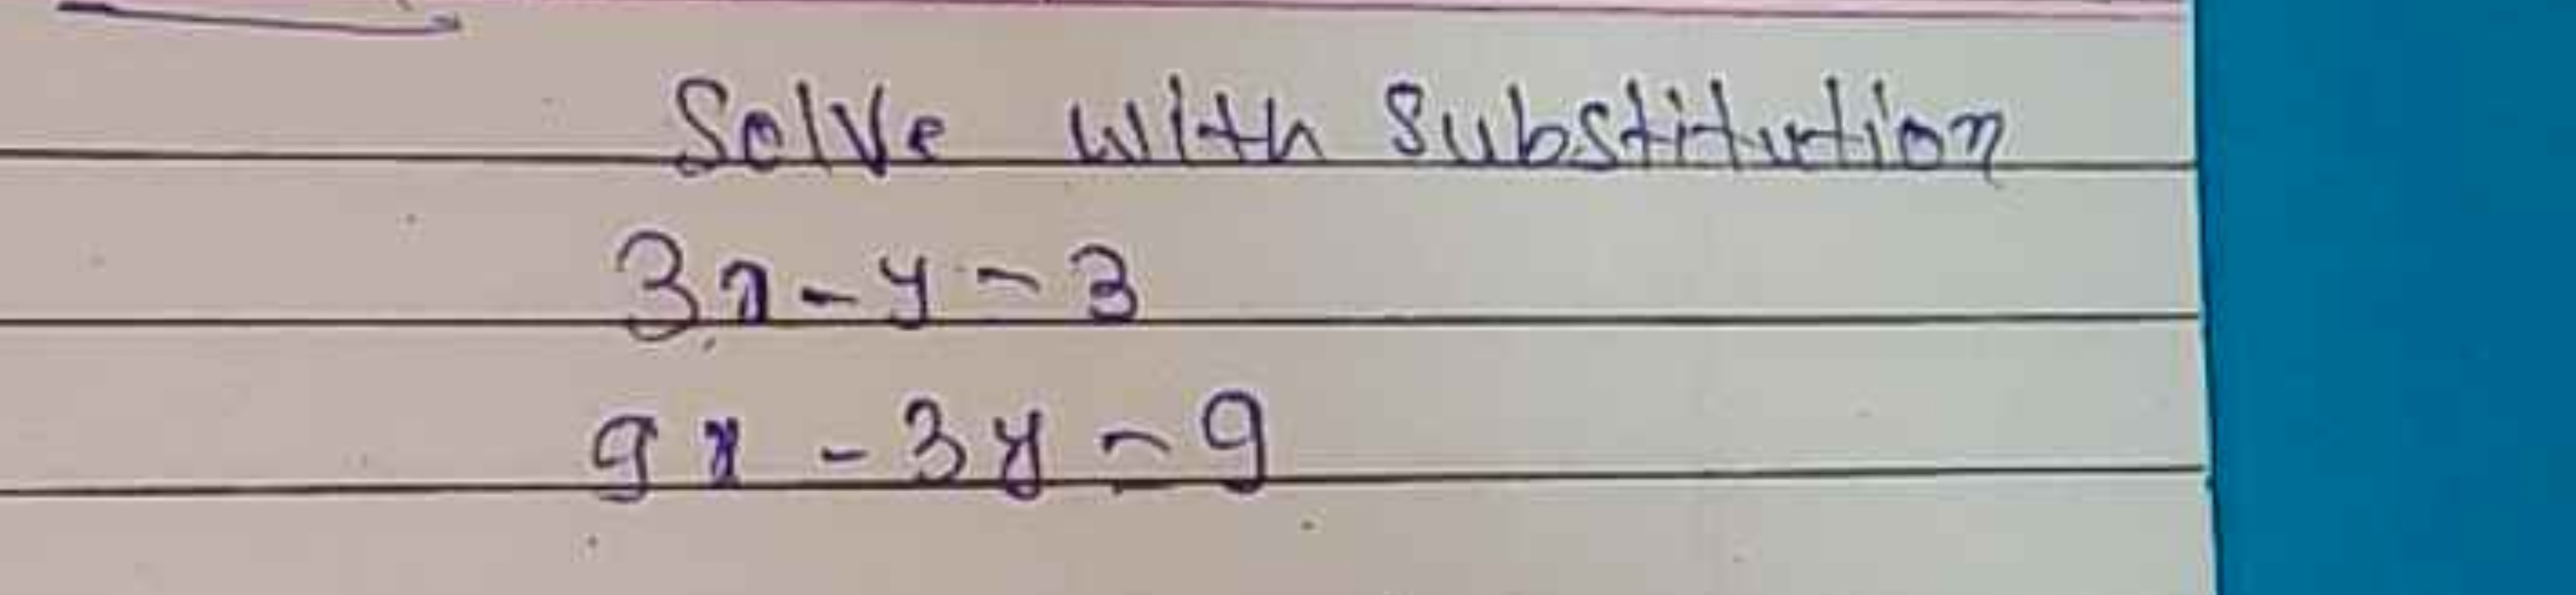 Solve with Substitution
3x - y = 3
9x - 3y = 9